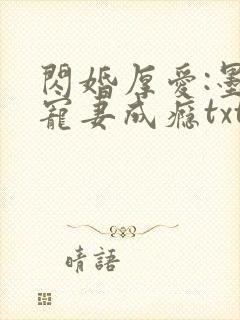 閃婚厚愛:墨
寵妻成癮txt
晴語